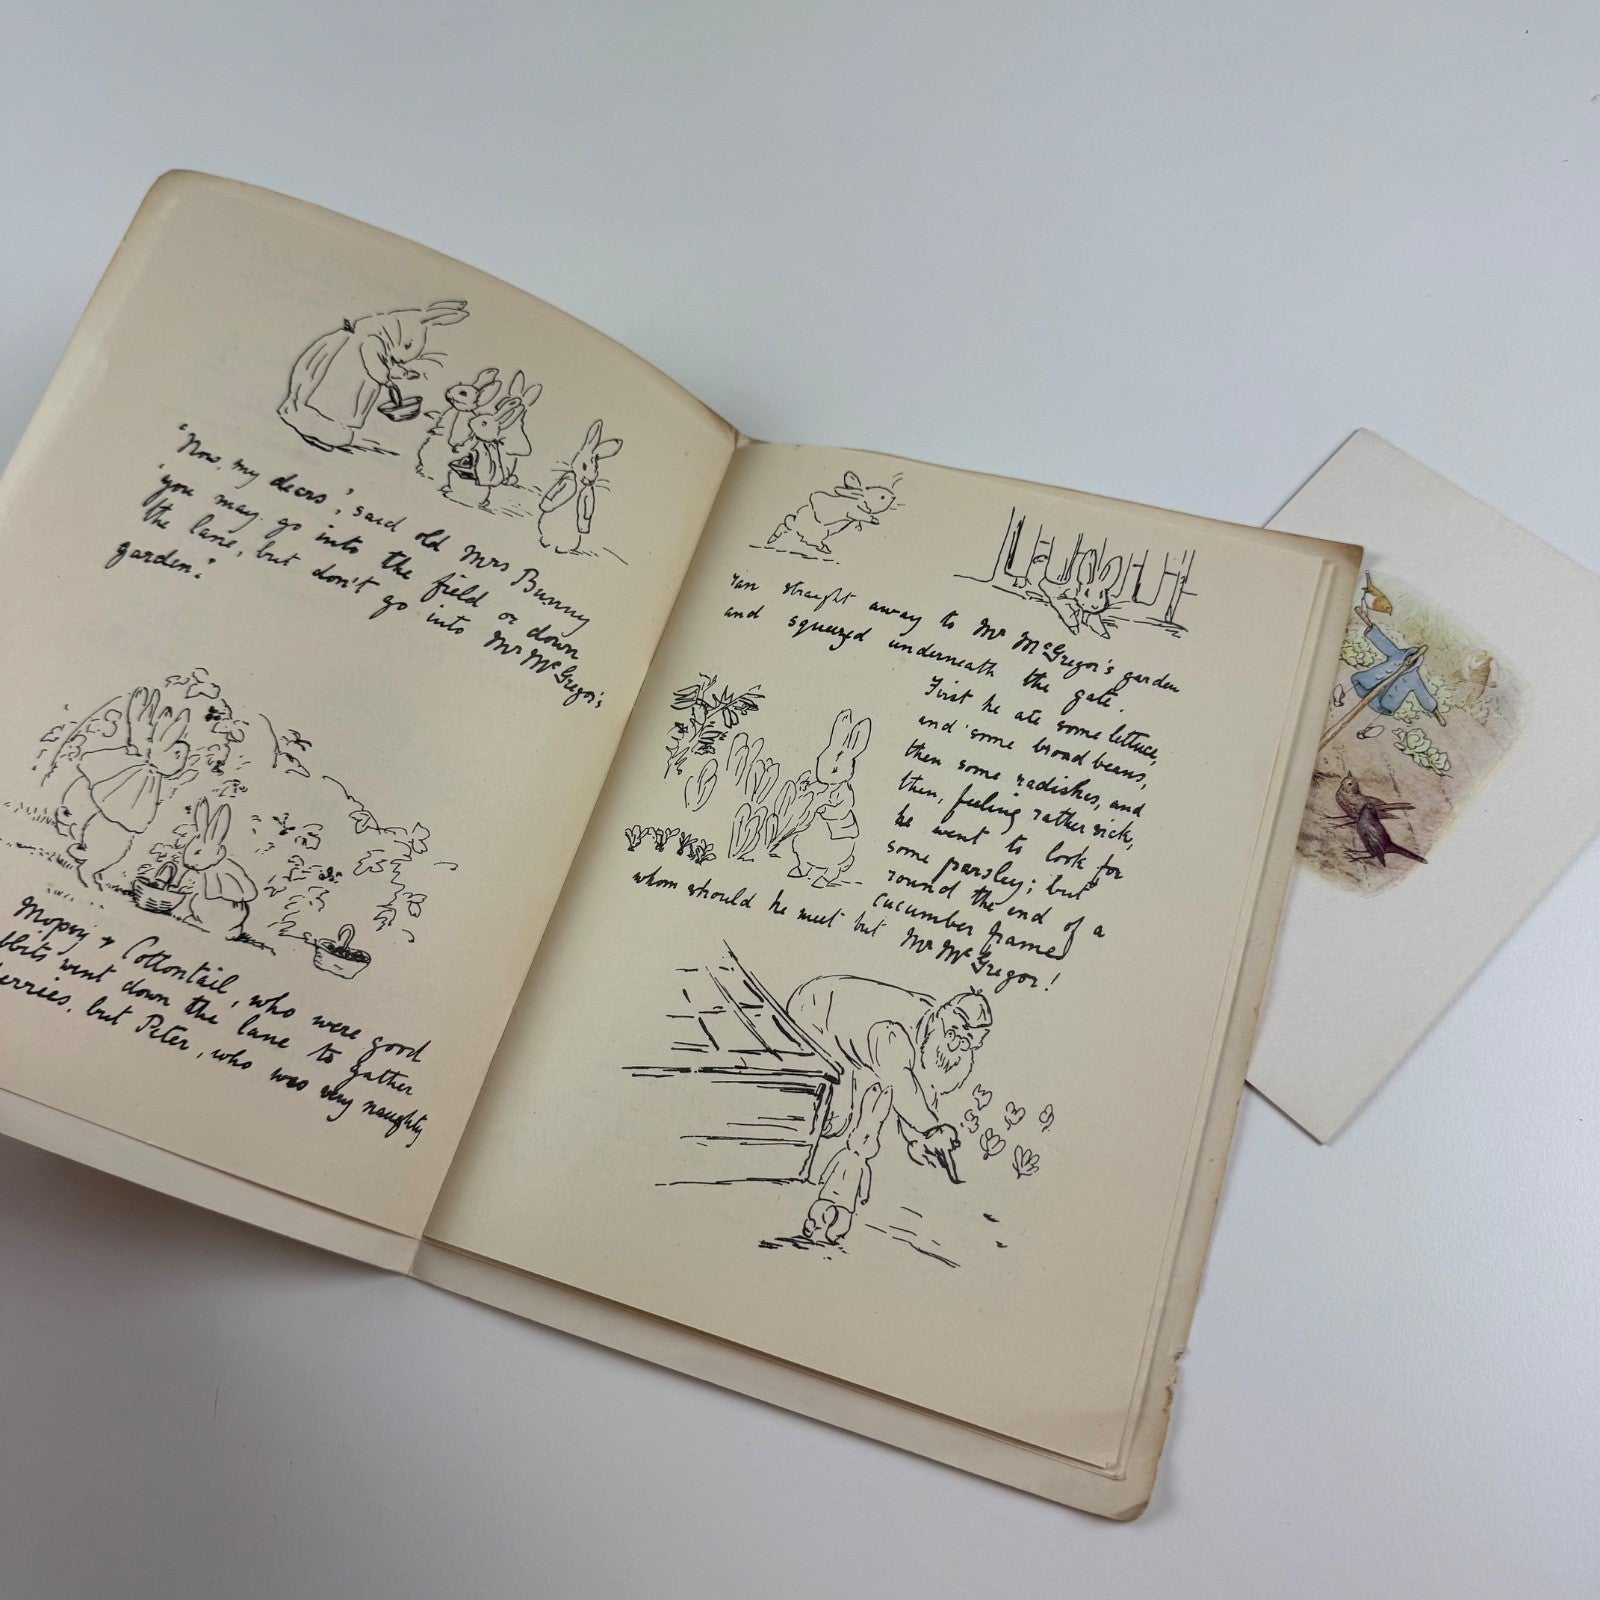 'Now, my dears', said old Mrs Bunny
'you may go into the field or down
the lane, but don't go into Mr McGregor's
garden.'
Mopsy & Cottontail, who were good
went down the lane to gather
but Peter, who was very naughty
ran straight away to Mr McGregor's garden
and squeezed underneath the gate.
First he ate some lettuce,
and some broad beans,
then some radishes, and
then, feeling rather sick,
he went to look for
some parsley; but
round the end of a
cucumber frame
whom should he meet but Mr McGregor!